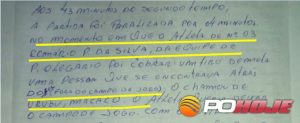 AOS 43 MINUTOS DO SEGUNDO TEMPO,
A PARTIDA FOI PARALIZADA POR 4 MINUTOS
NO MOMENTO EM QUE O ATLETA DE Nº 03
ROMÁRIO P. DA SILVA, DA EQUIPE DE
P. OLEGARIO FOI COBRAR UM TIRO DE META
UMA PESSOA QUE SE ENCONTRAVA ATRAS
DO (FORA DO CAMPO DE JOGO), O CHAMOU DE
URUBU, MACACO. O ATLETA
O CAMPO DE JOGO. COM O
POHOJE